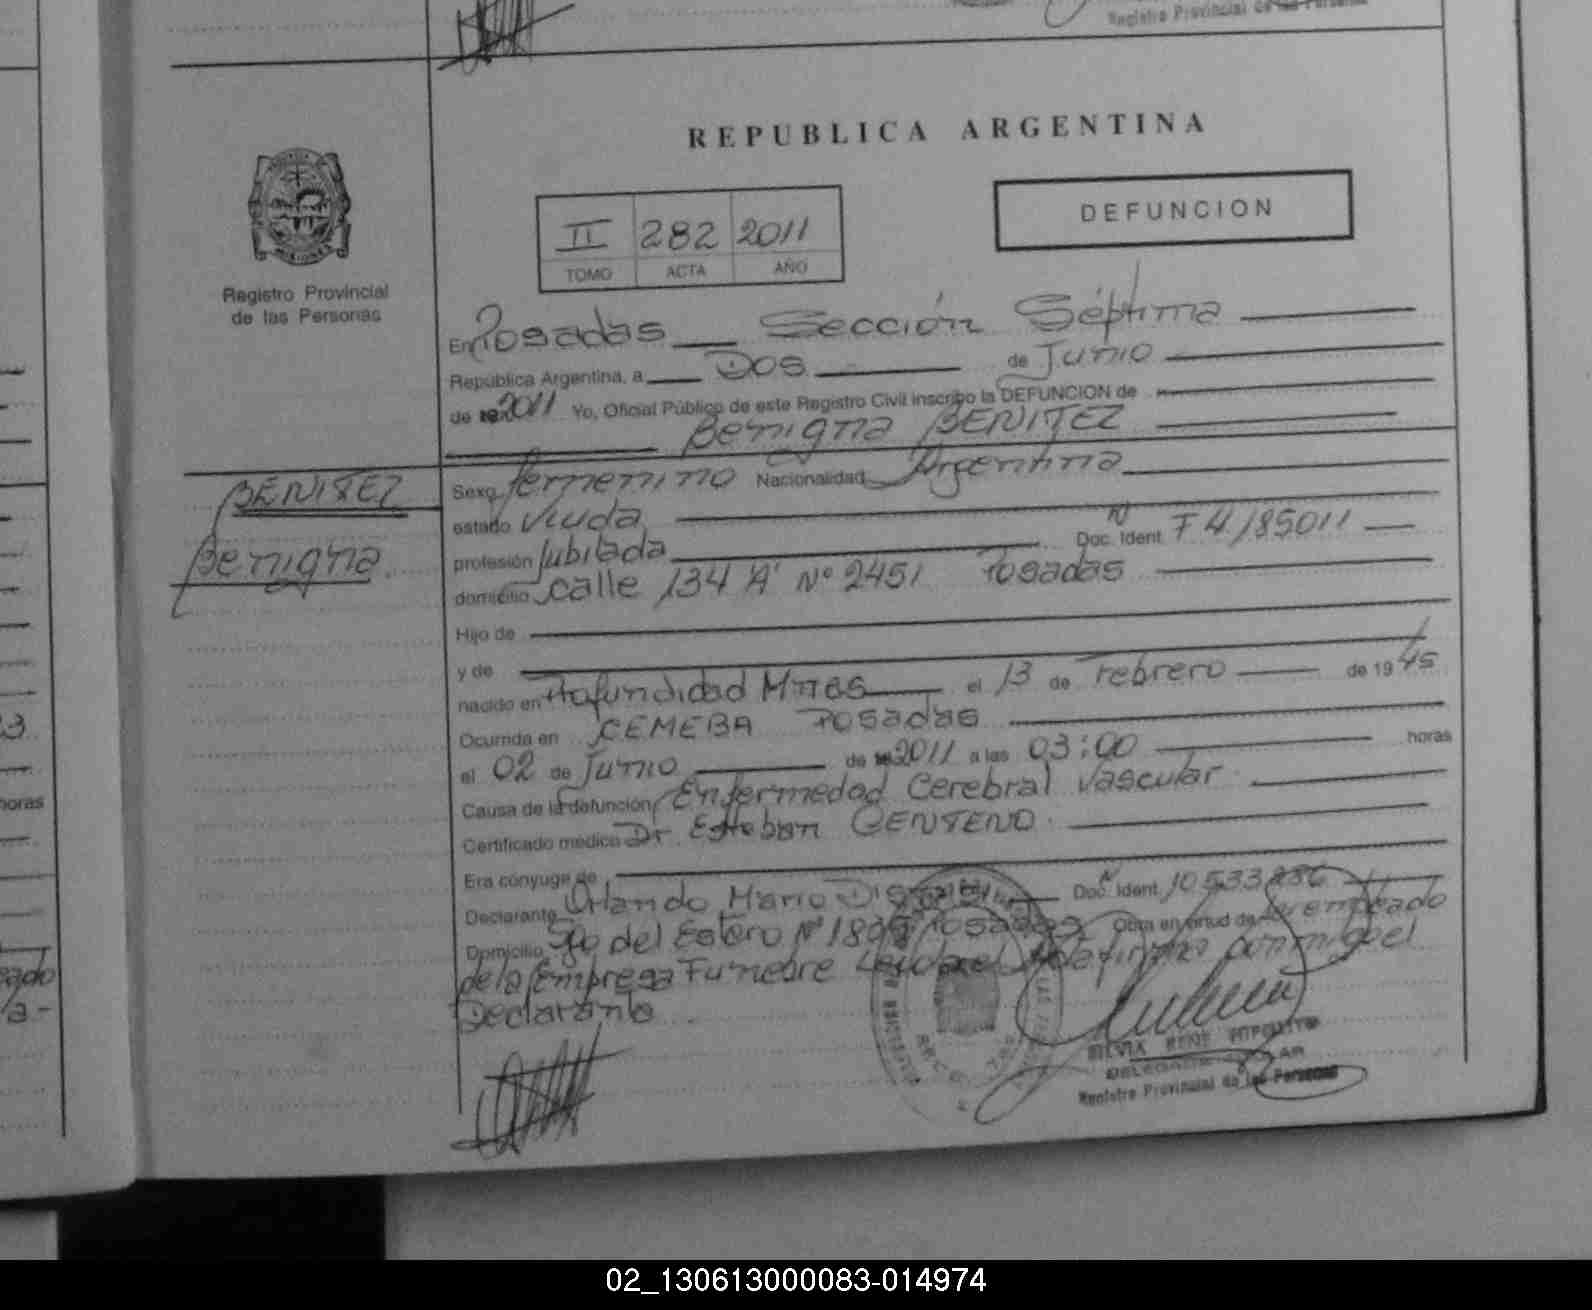 Registro Provincial de las Personas
REPUBLICA ARGENTINA
DEFUNCION
II 282 2011
TOMO ACTA AÑO
Registro Provincial
de las Personas
En Posadas Sección Séptima
República Argentina, a Dos de Junio
de 2011 Yo, Oficial Público de este Registro Civil inscribo la DEFUNCION de
Benigna BENITEZ
BENITEZ
Benigna
Sexo femenino Nacionalidad Argentina
estado Viuda
profesión Jubilada Doc. Ident. F 4.185011
domicilio calle 134 "A" Nº 2451 Posadas
Hijo de
y de
nacido en Profundidad Mnes el 13 de Febrero de 1945
Ocurrida en CEMEBA Posadas
el 02 de Junio de 2011 a las 03:00 horas
Causa de la defunción Enfermedad Cerebral Vascular
Certificado médico Dr. Esteban CENTENO
Era cónyuge de
Declarante Orlando Mario Doc. Ident. 10.533.
Domicilio Sgo del Estero Nº Posadas Obra en virtud de ser empleado
de la Empresa Funebre Leida el Acta firma conmigo el
Declarante
SILVIA RENE
DELEGADA TITULAR
Registro Provincial de las Personas
23
horas
02_130613000083-014974